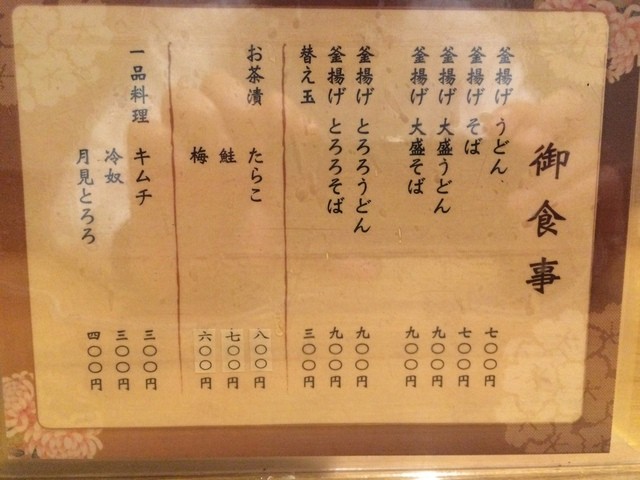 御食事
釜揚げ うどん 七〇〇円
釜揚げ そば 七〇〇円
釜揚げ 大盛うどん 九〇〇円
釜揚げ 大盛そば 九〇〇円
釜揚げ とろろうどん 九〇〇円
釜揚げ とろろそば 九〇〇円
替え玉 三〇〇円
お茶漬 たらこ 八〇〇円
鮭 七〇〇円
梅 六〇〇円
一品料理 キムチ 三〇〇円
冷奴 三〇〇円
月見とろろ 四〇〇円